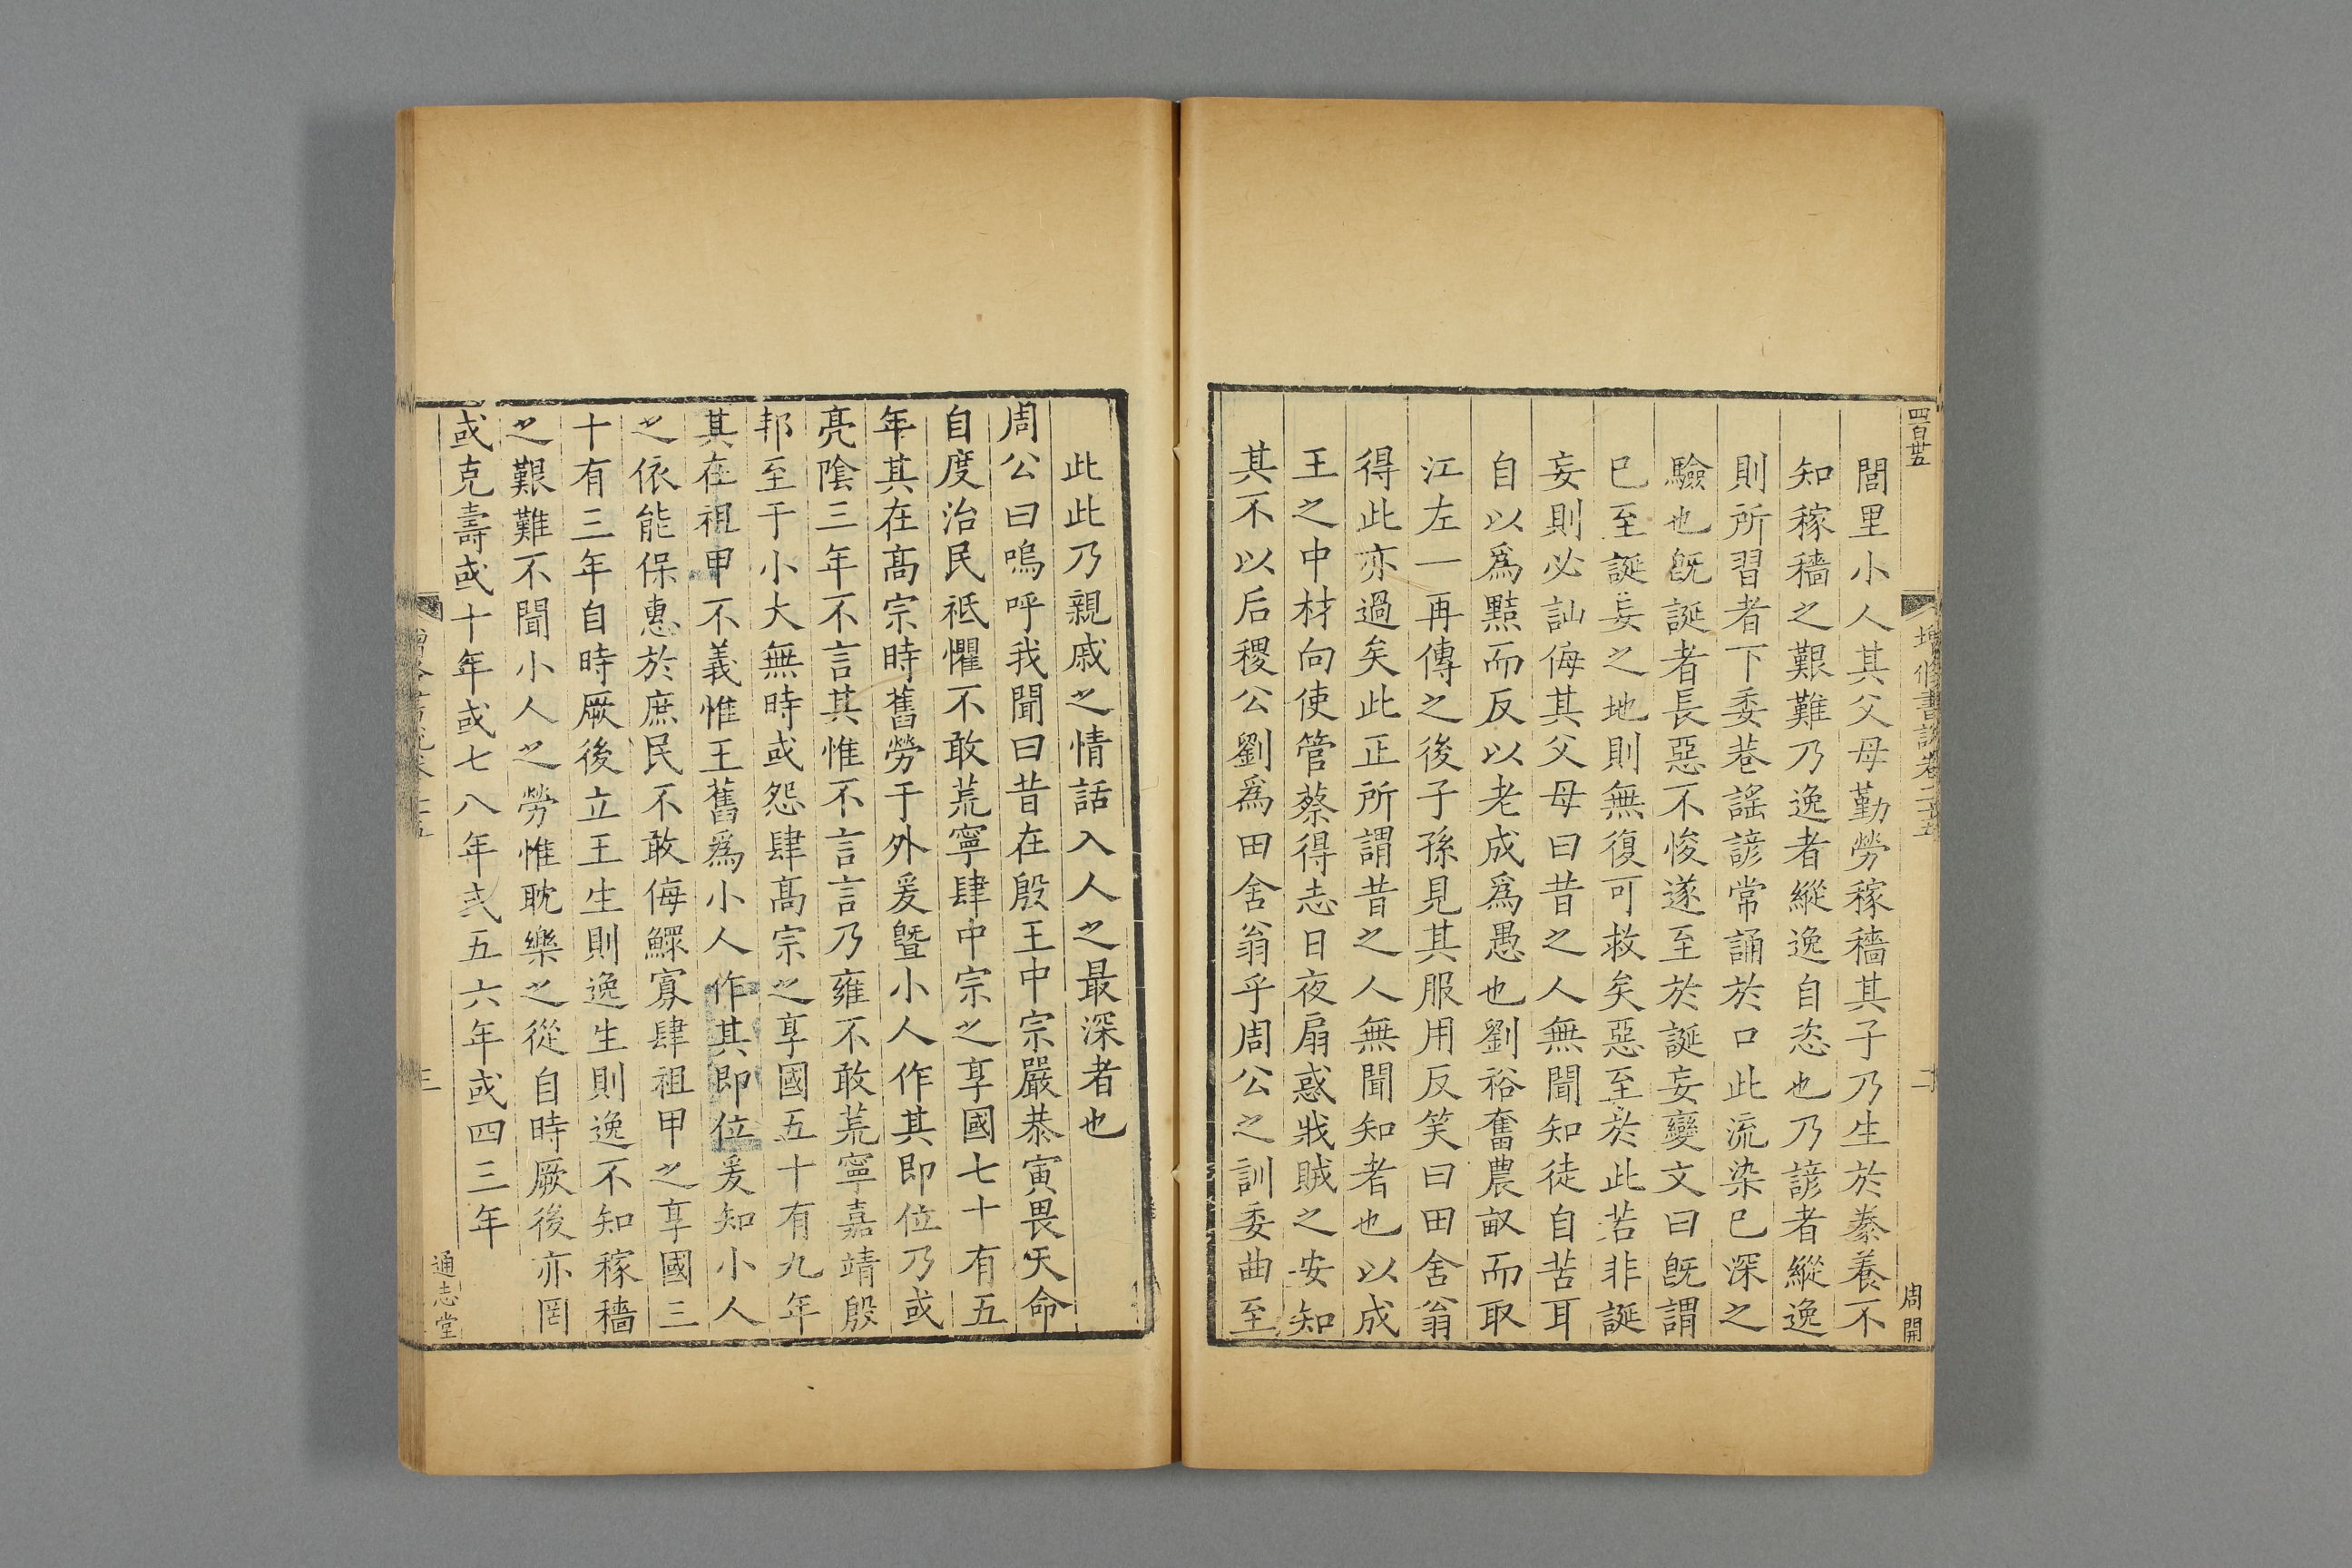 四百廿五
增修書說卷二十五
二
周開
閭里小人其父母勤勞稼穡其子乃生於豢養不
知稼穡之艱難乃逸者縱逸自恣也乃諺者縱逸
則所習者下委巷謠諺常誦於口此流染已深之
驗也旣誕者長惡不悛遂至於誕妄變文曰旣謂
已至誕妄之地則無復可救矣惡至於此苦非誕
妄則必訕侮其父母曰昔之人無聞知徒自苦耳
自以爲黠而反以老成爲愚也劉裕奮農畝而取
江左一再傳之後子孫見其服用反笑曰田舍翁
得此亦過矣此正所謂昔之人無聞知者也以成
王之中材向使管蔡得志日夜扇惑戕賊之安知
其不以后稷公劉爲田舍翁乎周公之訓委曲至
此此乃親戚之情話入人之最深者也
周公曰嗚呼我聞曰昔在殷王中宗嚴恭寅畏天命
自度治民祗懼不敢荒寧肆中宗之享國七十有五
年其在髙宗時舊勞于外爰曁小人作其即位乃或
亮陰三年不言其惟不言言乃雍不敢荒寧嘉靖殷
邦至于小大無時或怨肆髙宗之享國五十有九年
其在祖甲不義惟王舊爲小人作其即位爰知小人
之依能保惠於庶民不敢侮鰥寡肆祖甲之享國三
十有三年自時厥後立王生則逸生則逸不知稼穡
之艱難不聞小人之勞惟耽樂之從自時厥後亦罔
或克壽或十年或七八年或五六年或四三年
三
通志堂